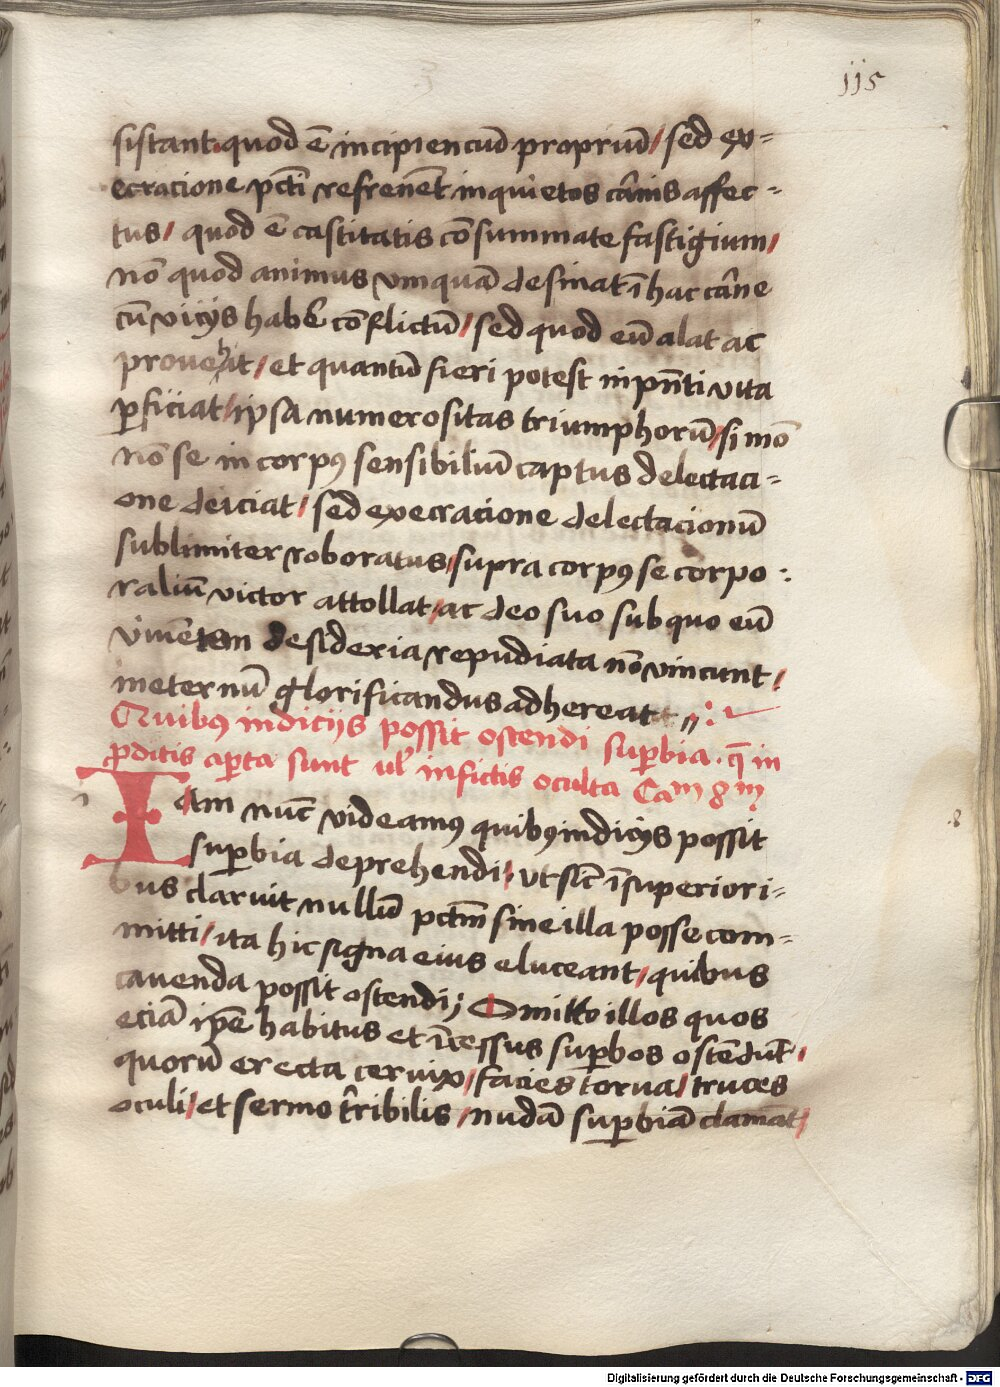 jj5
sistant. quod ē incipiencuꝫ propriū/ sed ex=
ecracione pcti̅ refrenēt inquietos car̄nis affec=
tus/ quod ē castitatis cōsummate fastigium/
nō quod animus vnquā desinat ī hac car̄ne
cū vicijs habēr cōflictū/ sed quod eū alat ac
provehat/ et quantū fieri potest in pn̄ti vita
ꝑficiat/ ipsa numerositas triumphorū/ si mō
nō se in corpꝰ sensibiliū captus delectaci=
one deiciat/ sed execracione delectacionū
sublimiter roboratus/ supra corpꝰ se corpo:
raliū victor attollat/ ac deo suo sub quo eū
viuētem desideria repudiata nō vincunt/
in eternū glorificandus adhereat
Quibꝰ indicijs possit ostendi suꝑbia. q̄ in
ꝓditis aꝑta sunt ul̄ in fictis oculta Cam 8m
Iam nūc videamꝰ quibꝰ indicijs possit
suꝑbia deprehendi/ vt sic̄ ī superiori=
bus claruit nullū pctm̄ sine illa posse com=
mitti/ ita hic signa eius eluceant/ quibus
cauenda possit ostendi; Omitto illos quos
eciā ip̄e habitus et īcessus suꝑbos ostēdūt/
quorū erecta ceruix/ facies torua/ truces
oculi/ et sermo t̄ribilis/ nudā suꝑbiā clamāt/
Digitalisierung gefördert durch die Deutsche Forschungsgemeinschaft - DFG